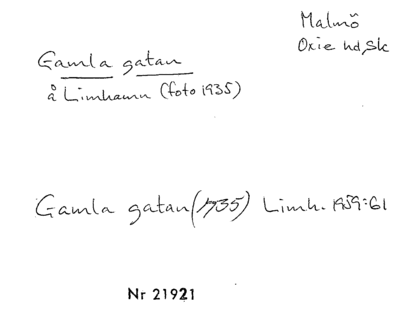 Malmö
Oxie hd, Sk
Gamla gatan
å Limhamn (foto 1935)
Gamla gatan (1935) Limh. 1959:61
Nr 21921